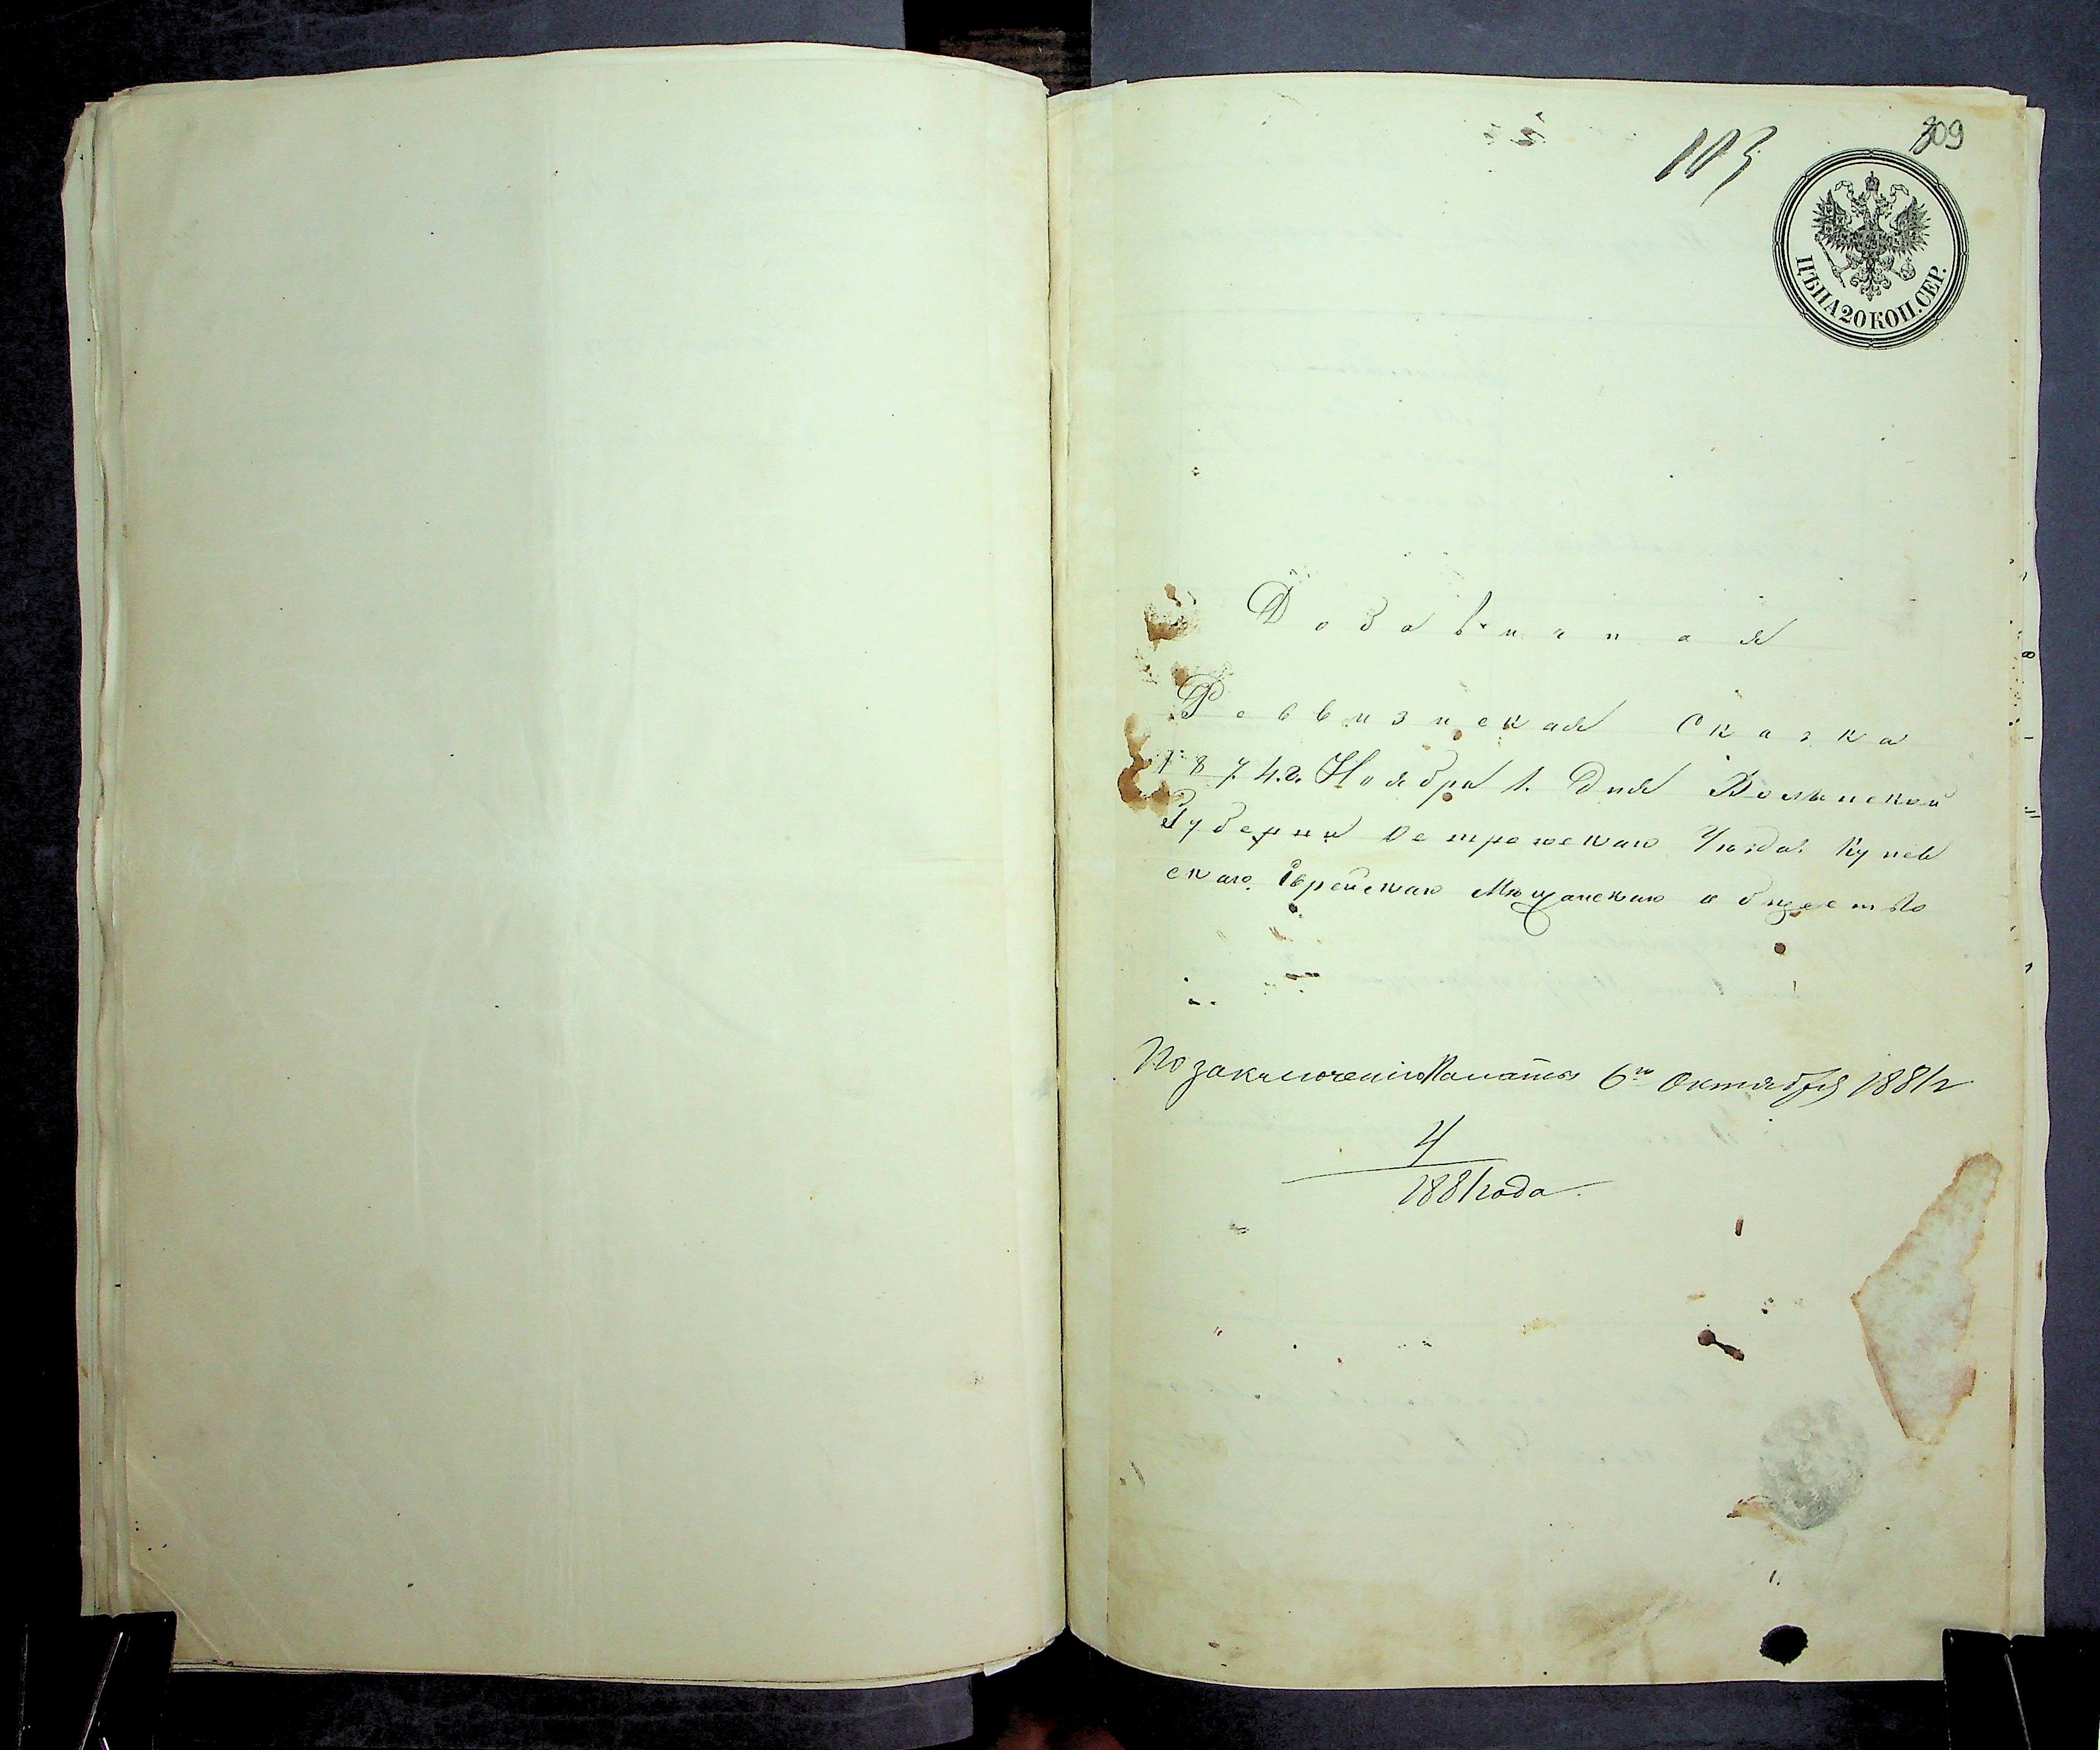 103
309
ЦѢНА 20 КОП. СЕР.
Добавичная
Реввизиская Сказка
1874. г. Ноября 1. Дня Волынской
Губерни Острожскаго Уѣзда. Купев
скаго. Еврейскаго Мѣщанскаго общество
По заключенію Палаты 6го Октября 1881 г
4
1881 года.